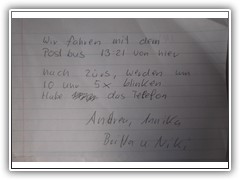 Wir fahren mit dem
Postbus 13.21 von hier
nach Zürs, werden um
10 Uhr 5x blinken
Habe das Telefon
Andrea,
Britta u. Nik.